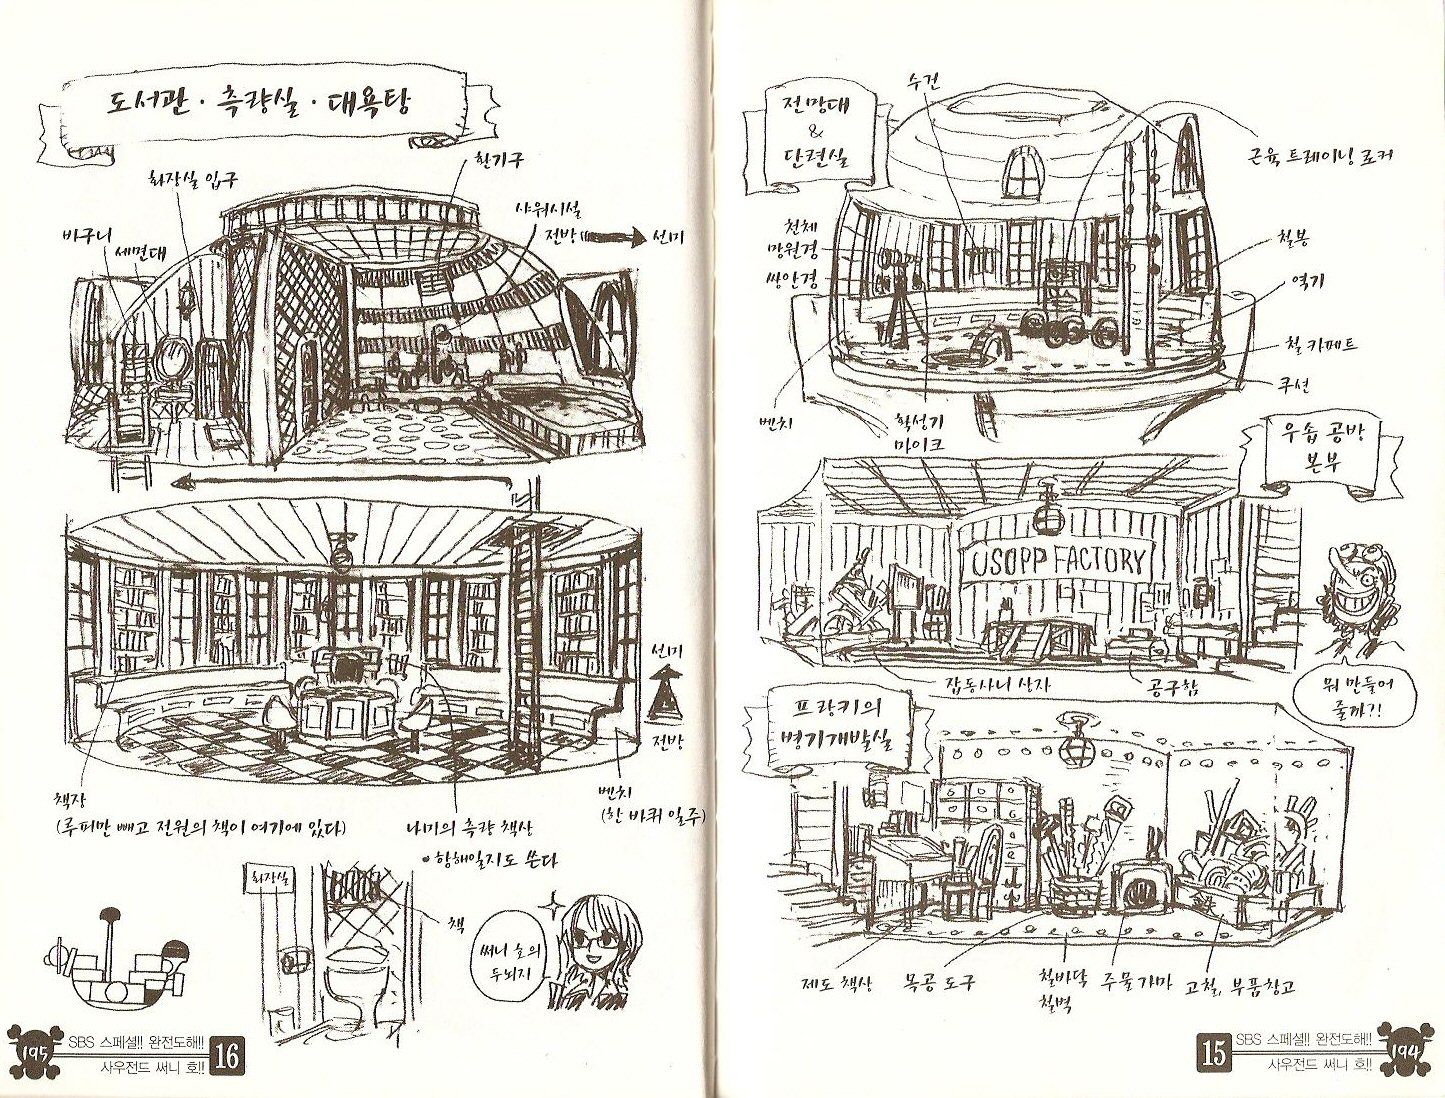 도서관 · 측량실 · 대욕탕
환기구
화장실 입구
샤워시설
전방
선미
바구니
세면대
선미
전방
책장
(루피만 빼고 전원의 책이 여기에 있다)
나미의 측량 책상
• 항해일지도 쓴다
벤치
(한 바퀴 일주)
화장실
책
써니 호의
두뇌지
195
SBS 스페셜!! 완전도해!!
사우전드 써니 호!!
16
전망대
&
단련실
수건
근육 트레이닝 로커
천체
망원경
쌍안경
철봉
역기
철 카페트
쿠션
벤치
확성기
마이크
우솝 공방
본부
USOPP FACTORY
잡동사니 상자
공구함
뭐 만들어
줄까?!
프랑키의
병기개발실
제도 책상
목공 도구
철바닥
철벽
주물 가마
고철, 부품창고
15
SBS 스페셜!! 완전도해!!
사우전드 써니 호!!
194